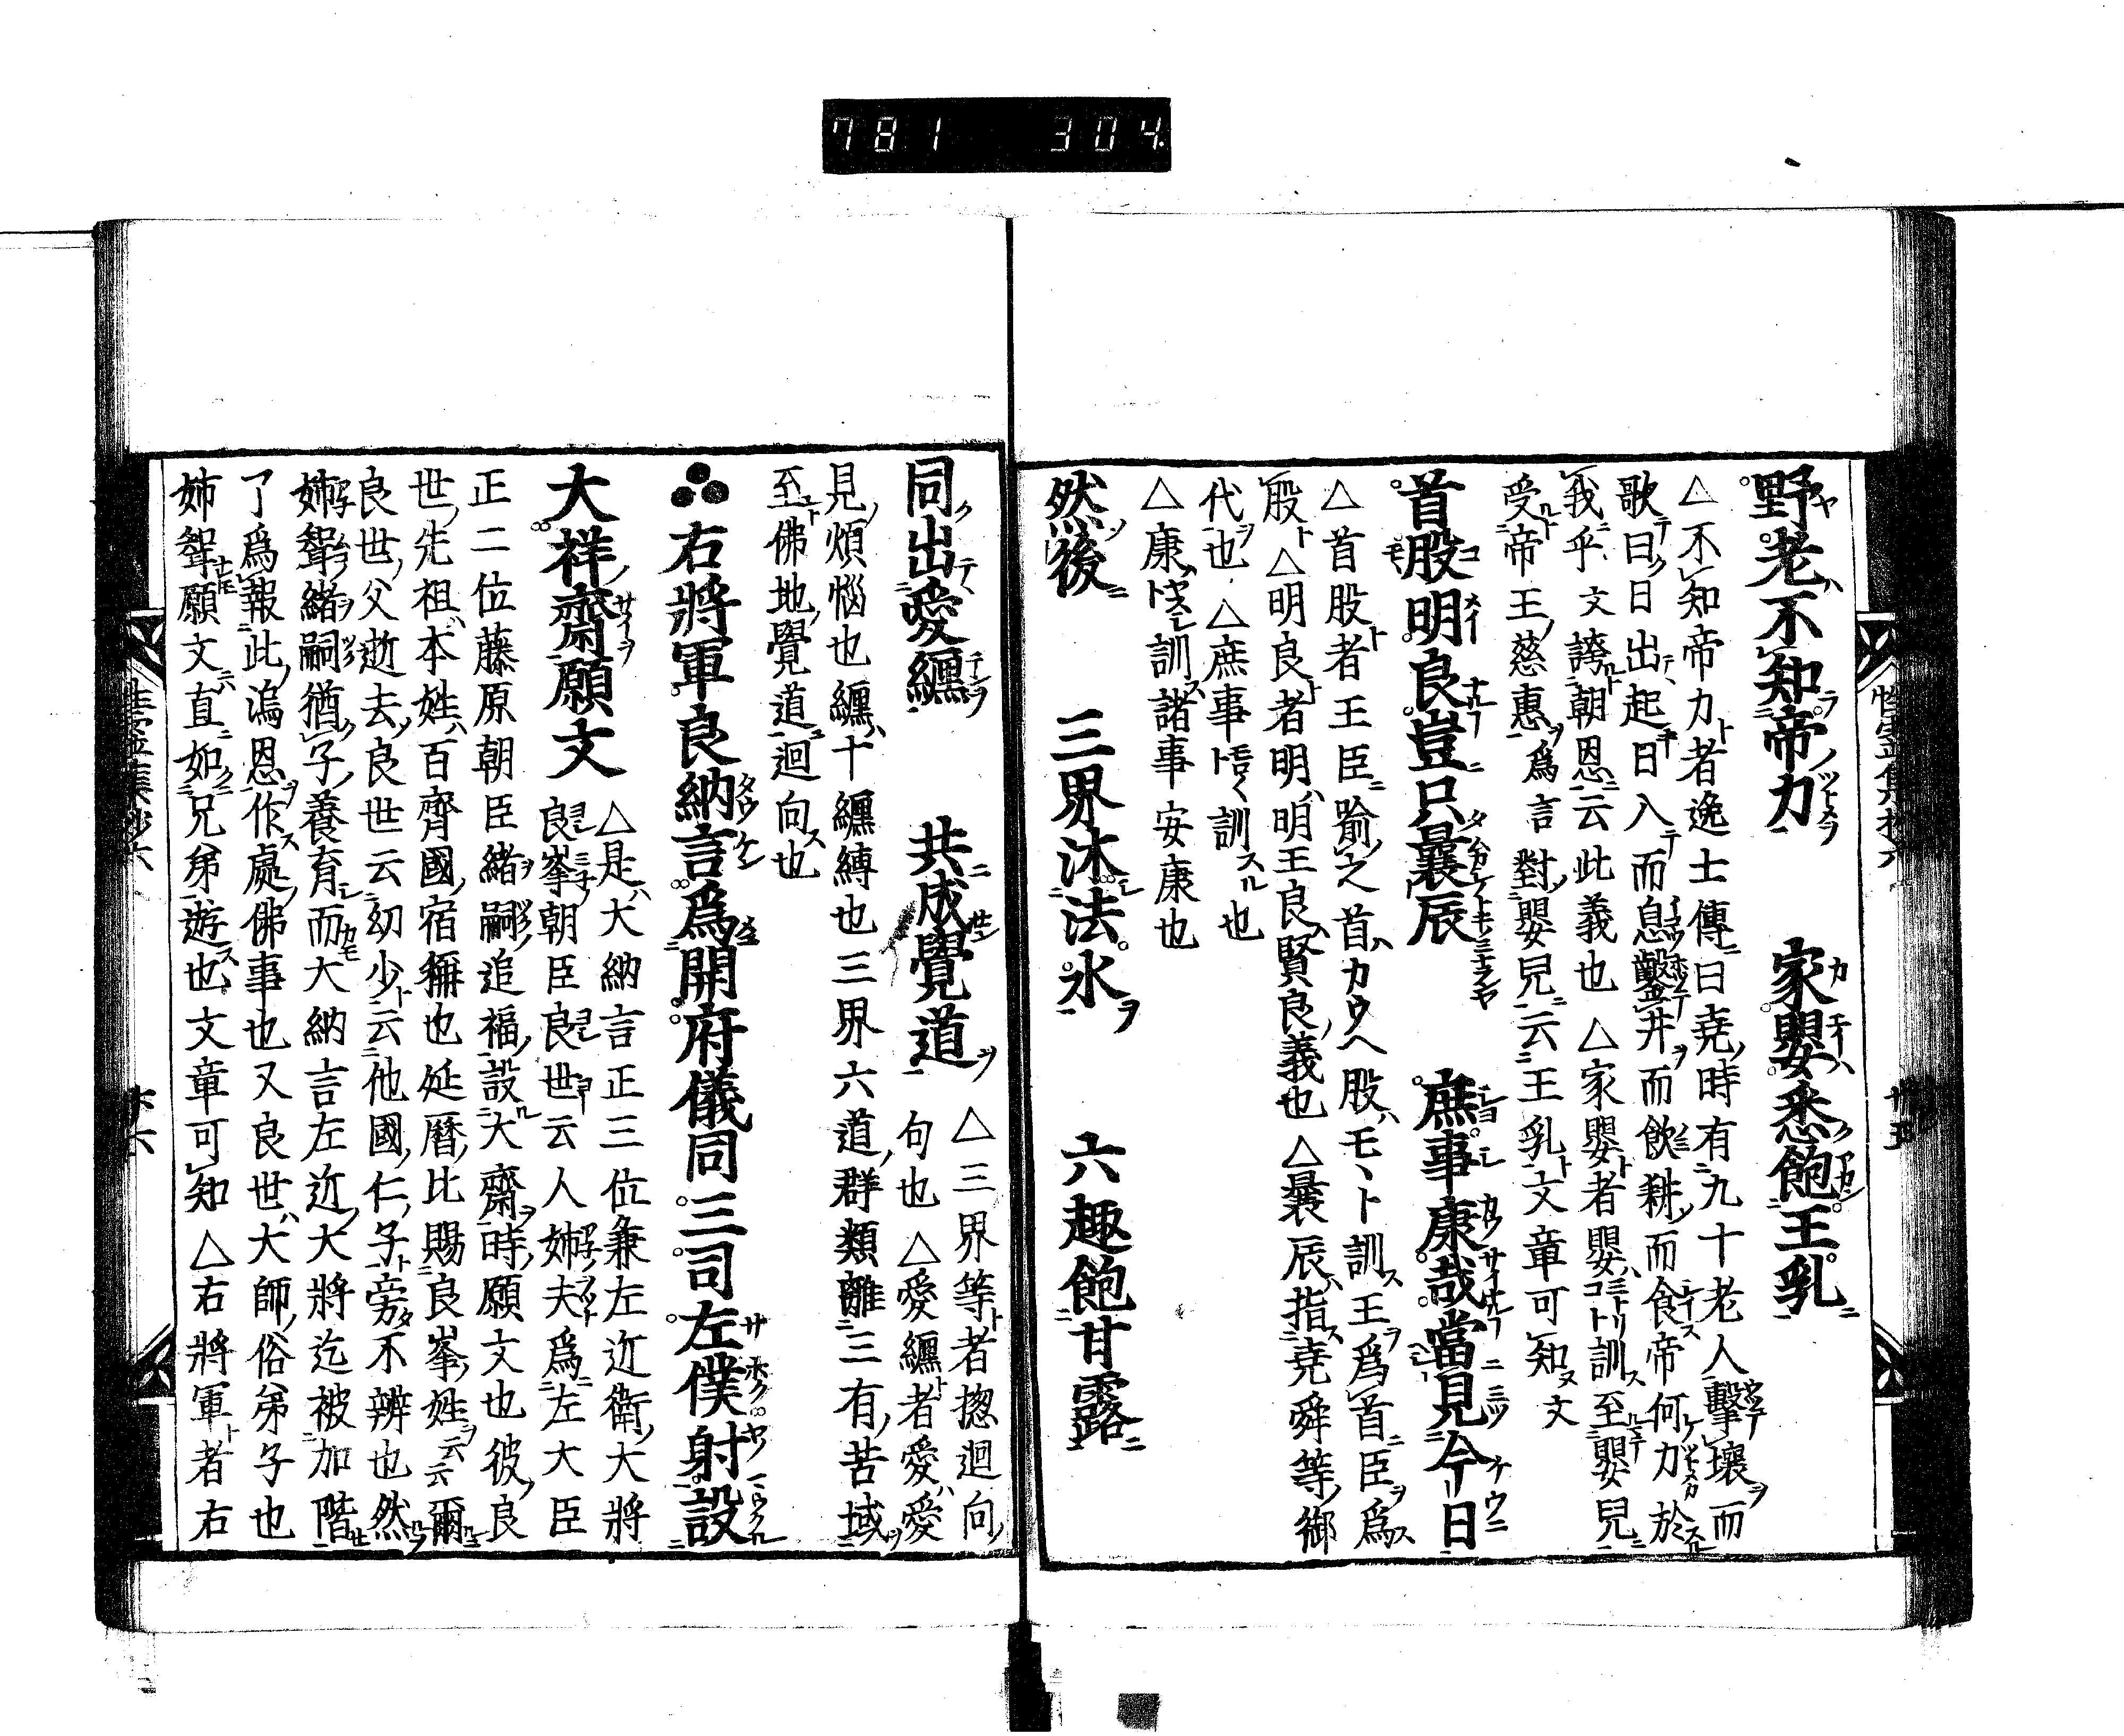 781 304
野老不知帝力 家嬰悉飽王乳
△不知帝力者逸士傳曰堯時有九十老人擊壤而
歌曰日出起日入而息鑿井而飲耕而食帝何力於
我乎文誇朝恩云此義也△家嬰者嬰コトリ訓至嬰兒
受帝王慈惠爲言對嬰兒云王乳文章可知文
首股明良豈只曩辰 庶事康哉當見今日
△首股者王臣喩之首カウヘ股モヽト訓王爲首臣爲
股△明良者明明王良賢良義也△曩辰指堯舜等御
代也△庶事訓スル也
△康訓諸事安康也
然後 三界沐法水 六趣飽甘露
同出愛纏 共成覺道 △三界等者揔迴向
句也△愛纏者愛愛
見煩惱也纏十纏縛也三界六道群類離三有苦域
至佛地覺道迴向也
右將軍良納言爲開府儀同三司左僕射設
大祥齋願文 △是大納言正三位兼左近衛大將
良峯朝臣良世云人姉夫爲左大臣
正二位藤原朝臣緒嗣追福設大齋時願文也彼良
世先祖本姓百齊國宿祢也延曆比賜良峯姓云云爾
良世父逝去良世云幼少云他國仁子旁不辨也然
姉聟緒嗣猶子養育而大納言左近大將迄被加階
了爲報此鴻恩作處佛事也又良世大師俗弟子也
姉聟願文直如兄弟遊也文章可知△右將軍者右